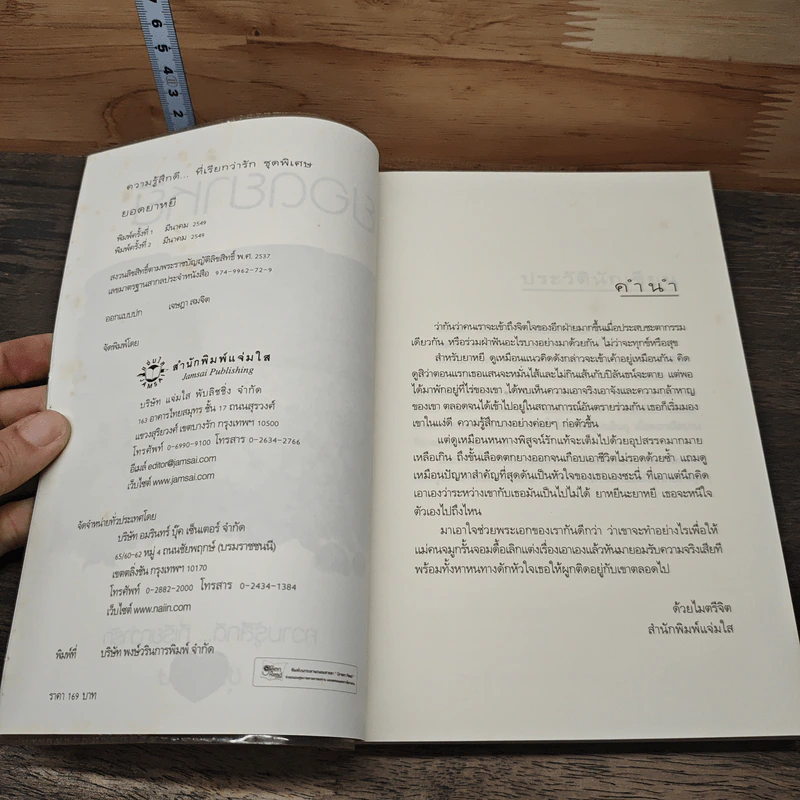 7 6 5 4 3 2
ความรู้สึกดี... ที่เรียกว่ารัก ชุดพิเศษ
ยอดยาหยี
พิมพ์ครั้งที่ 1 มีนาคม 2549
พิมพ์ครั้งที่ 2 มีนาคม 2549
สงวนลิขสิทธิ์ตามพระราชบัญญัติลิขสิทธิ์ พ.ศ. 2537
เลขมาตรฐานสากลประจำหนังสือ 974-9962-72-9
ออกแบบปก เจษฎา สมจิต
จัดพิมพ์โดย
สำนักพิมพ์แจ่มใส
Jamsai Publishing
บริษัท แจ่มใส พับลิชชิ่ง จำกัด
163 อาคารไทยสมุทร ชั้น 17 ถนนสุรวงศ์
แขวงสุริยวงศ์ เขตบางรัก กรุงเทพฯ 10500
โทรศัพท์ 0-6990-9100 โทรสาร 0-2634-2766
อีเมล์ editor@jamsai.com
เว็บไซต์ www.jamsai.com
จัดจำหน่ายทั่วประเทศโดย
บริษัท อมรินทร์ บุ๊ค เซ็นเตอร์ จำกัด
65/60-62 หมู่ 4 ถนนชัยพฤกษ์ (บรมราชชนนี)
เขตตลิ่งชัน กรุงเทพฯ 10170
โทรศัพท์ 0-2882-2000 โทรสาร 0-2434-1384
เว็บไซต์ www.naiin.com
พิมพ์ที่ บริษัท พงษ์วรินการพิมพ์ จำกัด
ราคา 169 บาท
คำนำ
ว่ากันว่าคนเราจะเข้าถึงจิตใจของอีกฝ่ายมากขึ้นเมื่อประสบชะตากรรม
เดียวกัน หรือร่วมฝ่าฟันอะไรบางอย่างมาด้วยกัน ไม่ว่าจะทุกข์หรือสุข
สำหรับยาหยี ดูเหมือนแนวคิดดังกล่าวจะเข้าเค้าอยู่เหมือนกัน คิด
ดูสิว่าตอนแรกเธอแสนจะหมั่นไส้และไม่กินเส้นกับปิลันธน์จะตาย แต่พอ
ได้มาพักอยู่ที่ไร่ของเขา ได้พบเห็นความเอาจริงเอาจังและความกล้าหาญ
ของเขา ตลอดจนได้เข้าไปอยู่ในสถานการณ์อันตรายร่วมกัน เธอก็เริ่มมอง
เขาในแง่ดี ความรู้สึกบางอย่างค่อยๆ ก่อตัวขึ้น
แต่ดูเหมือนหนทางพิสูจน์รักแท้จะเต็มไปด้วยอุปสรรคมากมาย
เหลือเกิน ถึงขั้นเลือดตกยางออกจนเกือบเอาชีวิตไม่รอดด้วยซ้ำ แถมดู
เหมือนปัญหาสำคัญที่สุดดันเป็นหัวใจของเธอเองซะนี่ ที่เอาแต่นึกคิด
เอาเองว่าระหว่างเขากับเธอมันเป็นไปไม่ได้ ยาหยีนะยาหยี เธอจะหนีใจ
ตัวเองไปถึงไหน
มาเอาใจช่วยพระเอกของเรากันดีกว่า ว่าเขาจะทำอย่างไรเพื่อให้
แม่คนจมูกรั้นจอมดื้อเลิกแต่งเรื่องเอาเองแล้วหันมายอมรับความจริงเสียที
พร้อมทั้งหาหนทางดักหัวใจเธอให้ผูกติดอยู่กับเขาตลอดไป
ด้วยไมตรีจิต
สำนักพิมพ์แจ่มใส